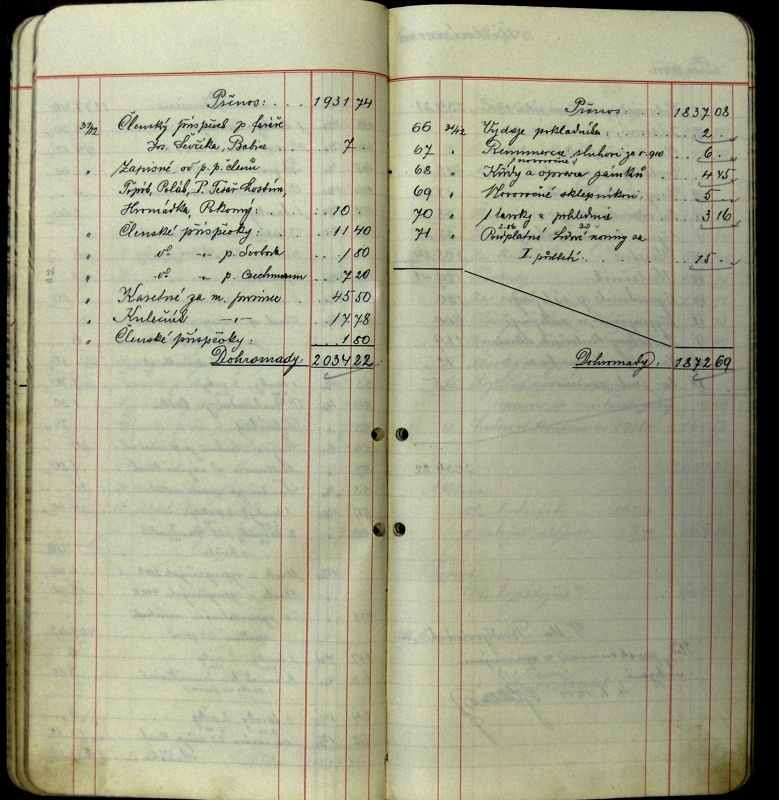 Přenos: . . . 1931 74
31/12 Členský příspěvek p. faráře
Jos. Ševčíka, Babice . . . 7 .
" Zápisné od p. p. členů
Polák, P. Tesař,
Hromádka, Pokorný: . . 10 .
" Členské příspěvky: . . . 11 40
" dto " p. Svoboda . . . 1 80
" dto " p. Czechmann . . . 7 20
" Karetné za m. prosinec . . . 45 50
" Kulečník —"— . . . 17 78
" Členské příspěvky: . . . 1 50
Dohromady: 2034 22
Přenos: . . . 1837 08
66 31/12 Výdaje pokladníka: . . 2 .
67 " sluhovi za r. 910 . . 6 .
68 " Křídy a oprava zámků . . 4 45
69 " Novoročné sklepníkovi . . 5 .
70 " a pohlednice . . 3 16
71 " Předplatné Lidové noviny za
I. pololetí . . . 15 .
Dohromady: 1872 69